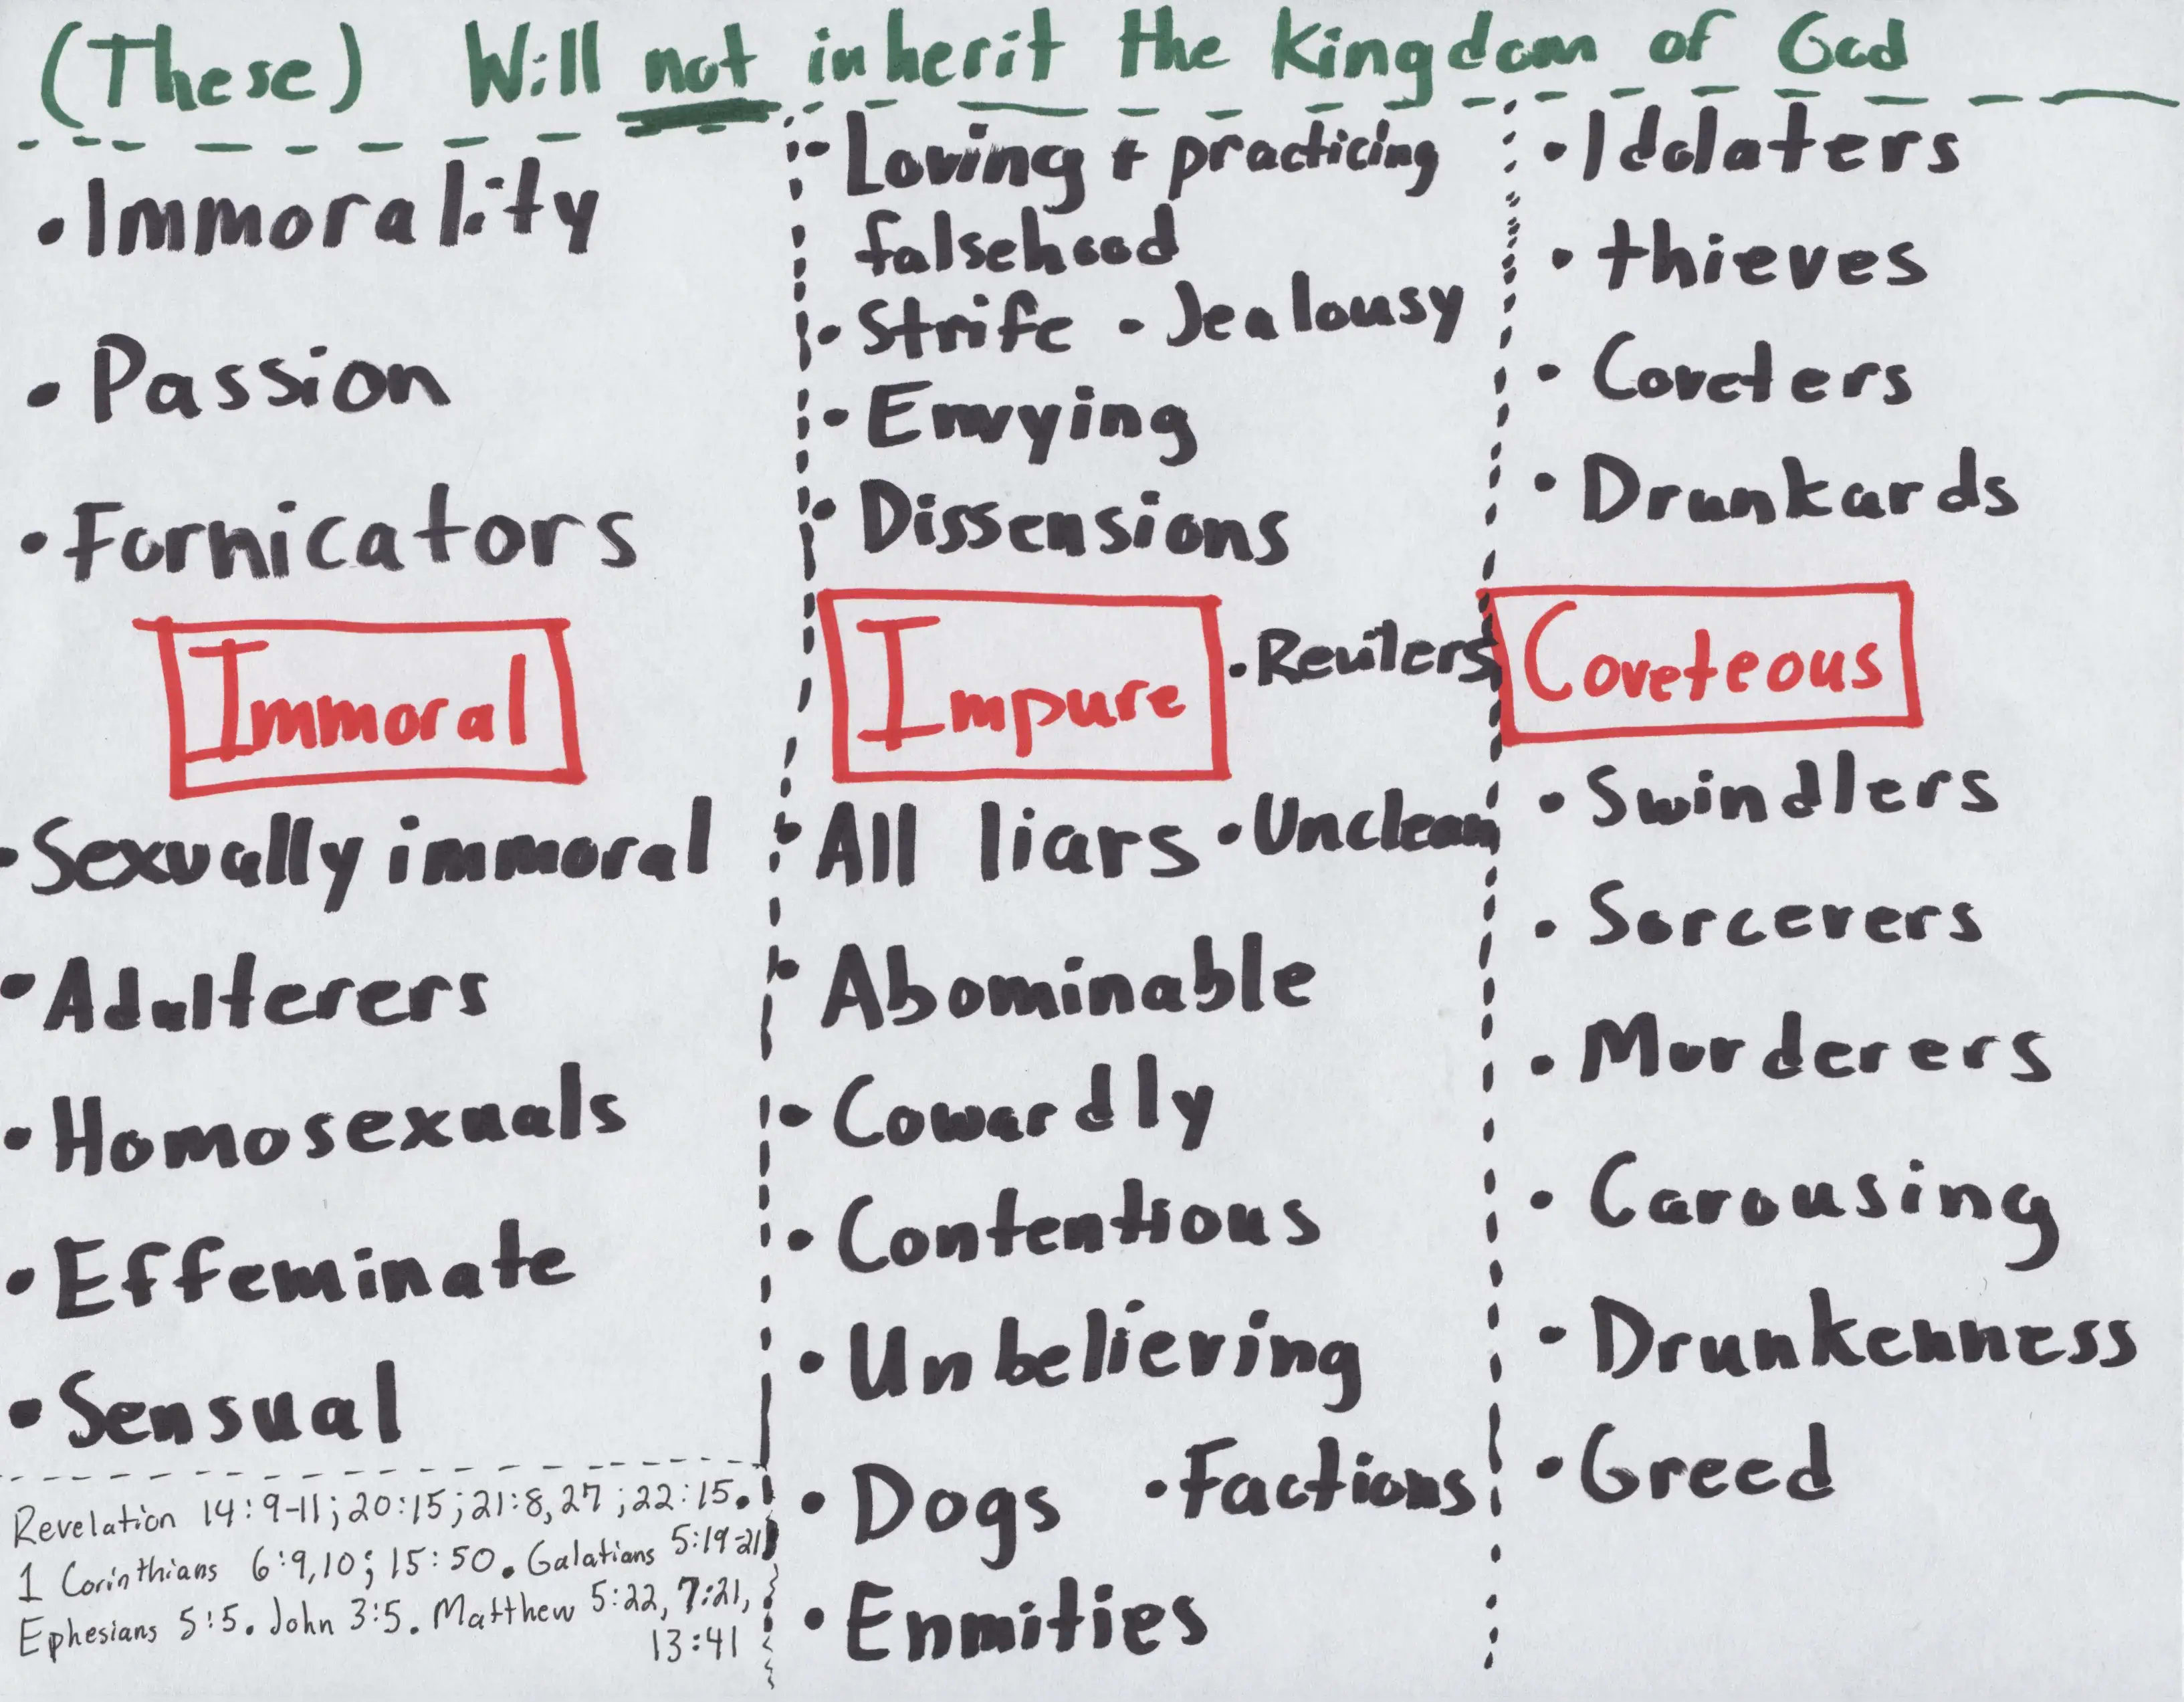 (These) Will not inherit the Kingdom of God
• Immorality
• Passion
• Fornicators
Immoral
• Sexually immoral
• Adulterers
• Homosexuals
• Effeminate
• Sensual
Revelation 14:9-11; 20:15; 21:8, 27; 22:15.
1 Corinthians 6:9,10; 15:50. Galatians 5:19-21
Ephesians 5:5. John 3:5. Matthew 5:22, 7:21,
13:41
• Loving + practicing
falsehood
• Strife • Jealousy
• Envying
• Dissensions
Impure • Revilers
• All liars • Unclean
• Abominable
• Cowardly
• Contentious
• Unbelieving
• Dogs • Factions
• Enmities
• Idolaters
• thieves
• Coveters
• Drunkards
Coveteous
• Swindlers
• Sorcerers
• Murderers
• Carousing
• Drunkenness
• Greed